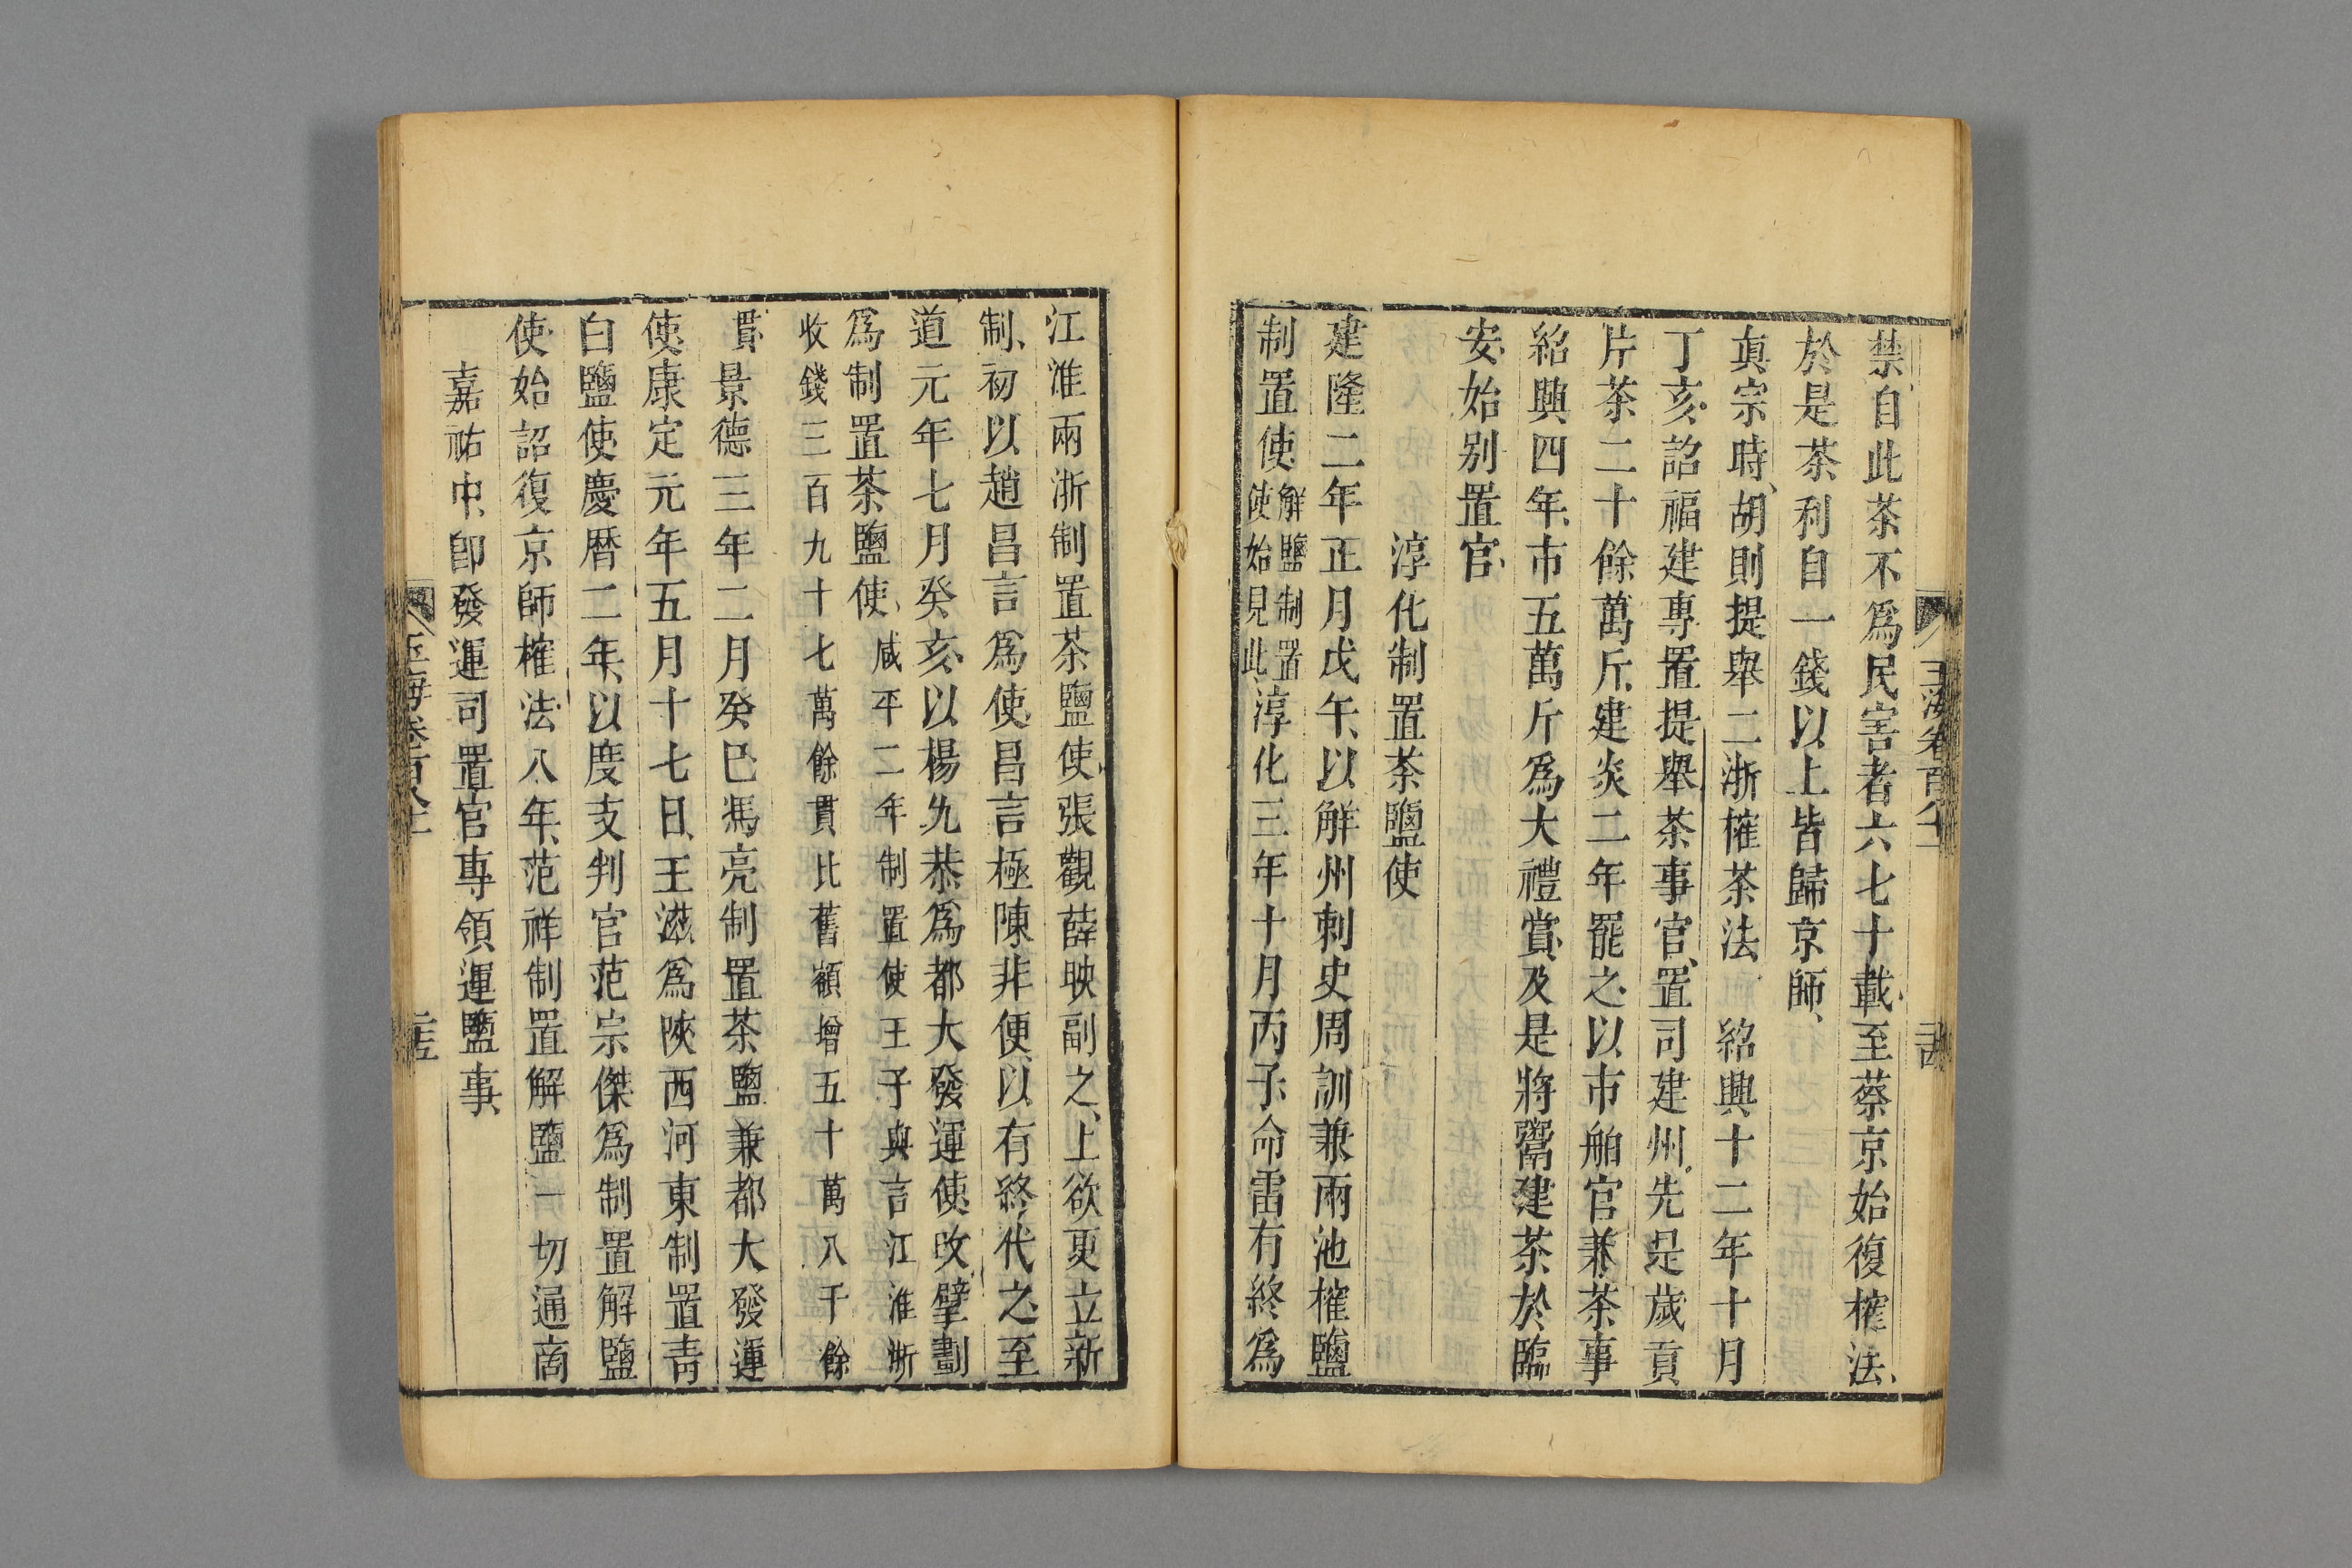 禁自此茶不爲民害者六七十載至蔡京始復榷法
於是茶利自一錢以上皆歸京師
真宗時胡則提舉二浙榷茶法　紹興十二年十月
丁亥詔福建專置提舉茶事官置司建州先是歲貢
片茶二十餘萬斤建炎二年罷之以市舶官兼茶事
紹興四年市五萬斤爲大禮賞及是將鬻建茶於臨
安始别置官
淳化制置茶鹽使
建隆二年正月戊午以解州刺史周訓兼兩池榷鹽
制置使解鹽制置使始見此淳化三年十月丙子命雷有終爲
江淮兩浙制置茶鹽使張觀薛映副之上欲更立新
制初以趙昌言爲使昌言極陳非便以有終代之至
道元年七月癸亥以楊允恭爲都大發運使改擘劃
爲制置茶鹽使咸平二年制置使王子輿言江淮浙
收錢三百九十七萬餘貫比舊額增五十萬八千餘
貫景德三年二月癸巳馮亮制置茶鹽兼都大發運
使康定元年五月十七日王滋爲陝西河東制置靑
白鹽使慶曆二年以度支判官范宗傑爲制置解鹽
使始詔復京師榷法八年范祥制置解鹽一切通商
嘉祐中卽發運司置官專領運鹽事
玉海卷百八十一